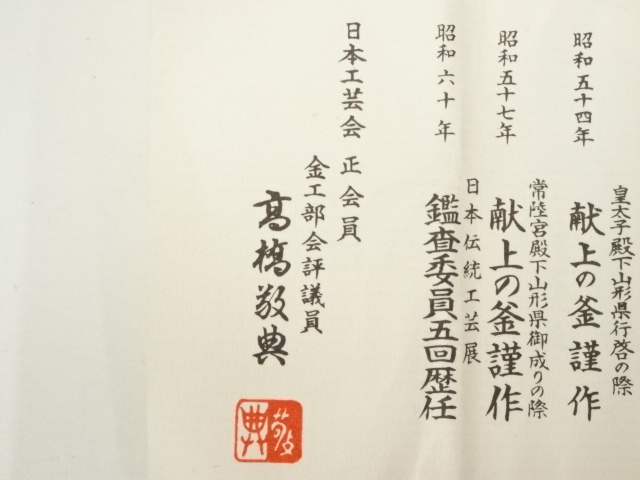 昭和五十四年
皇太子殿下山形県行啓の際
献上の釜謹作
昭和五十七年
常陸宮殿下山形県御成りの際
献上の釜謹作
昭和六十年
日本伝統工芸展
鑑査委員五回歴任
日本工芸会 正会員
金工部会評議員
高橋敬典
敬典